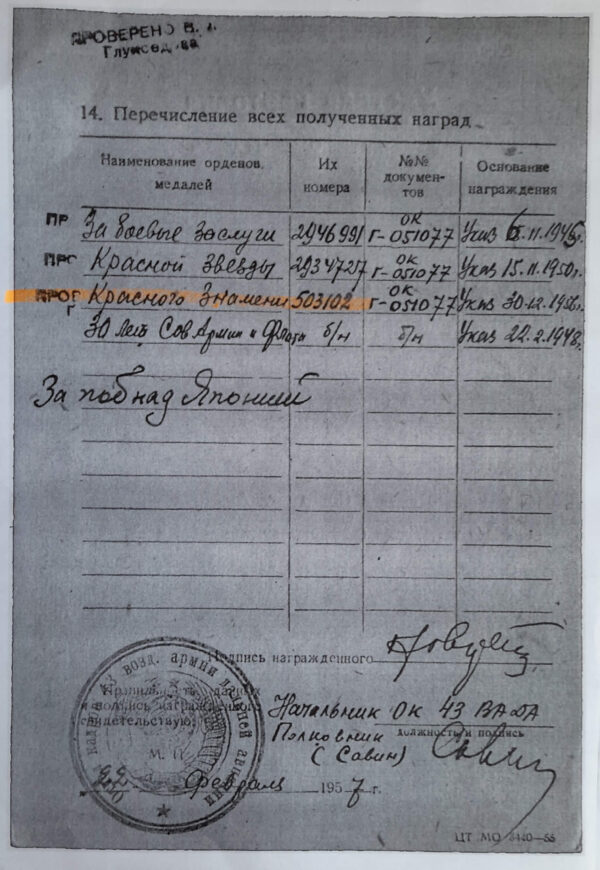 ПРОВЕРЕНО В.
14. Перечисление всех полученных наград
Наименование орденов, медалей
Их номера
№№ документов
Основание награждения
ПР За боевые заслуги 2946991 ОК Г-051077 Указ 6.11.1945г.
ПРО Красной Звезды 2934727 ОК Г-051077 Указ 15.11.1950г.
ПРОГ Красного Знамени 503102 ОК Г-051077 Указ 30.12.1956г.
30 лет Сов Армии и Флота б/н б/н Указ 22.2.1948г.
За поб над Японией
Подпись награжденного
Правильность данных
и подпись награжденного
свидетельствую:
М. П.
43 возд. армии дальней авиации
Начальник ОК 43 ВА ДА
должность и подпись
Полковник
(Савин)
февраля 1957 г.
ЦТ МО 3440—55